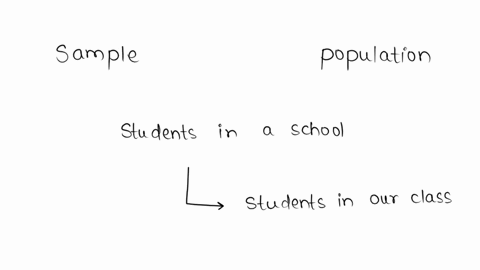 Sample population
Students in a school
Students in our class